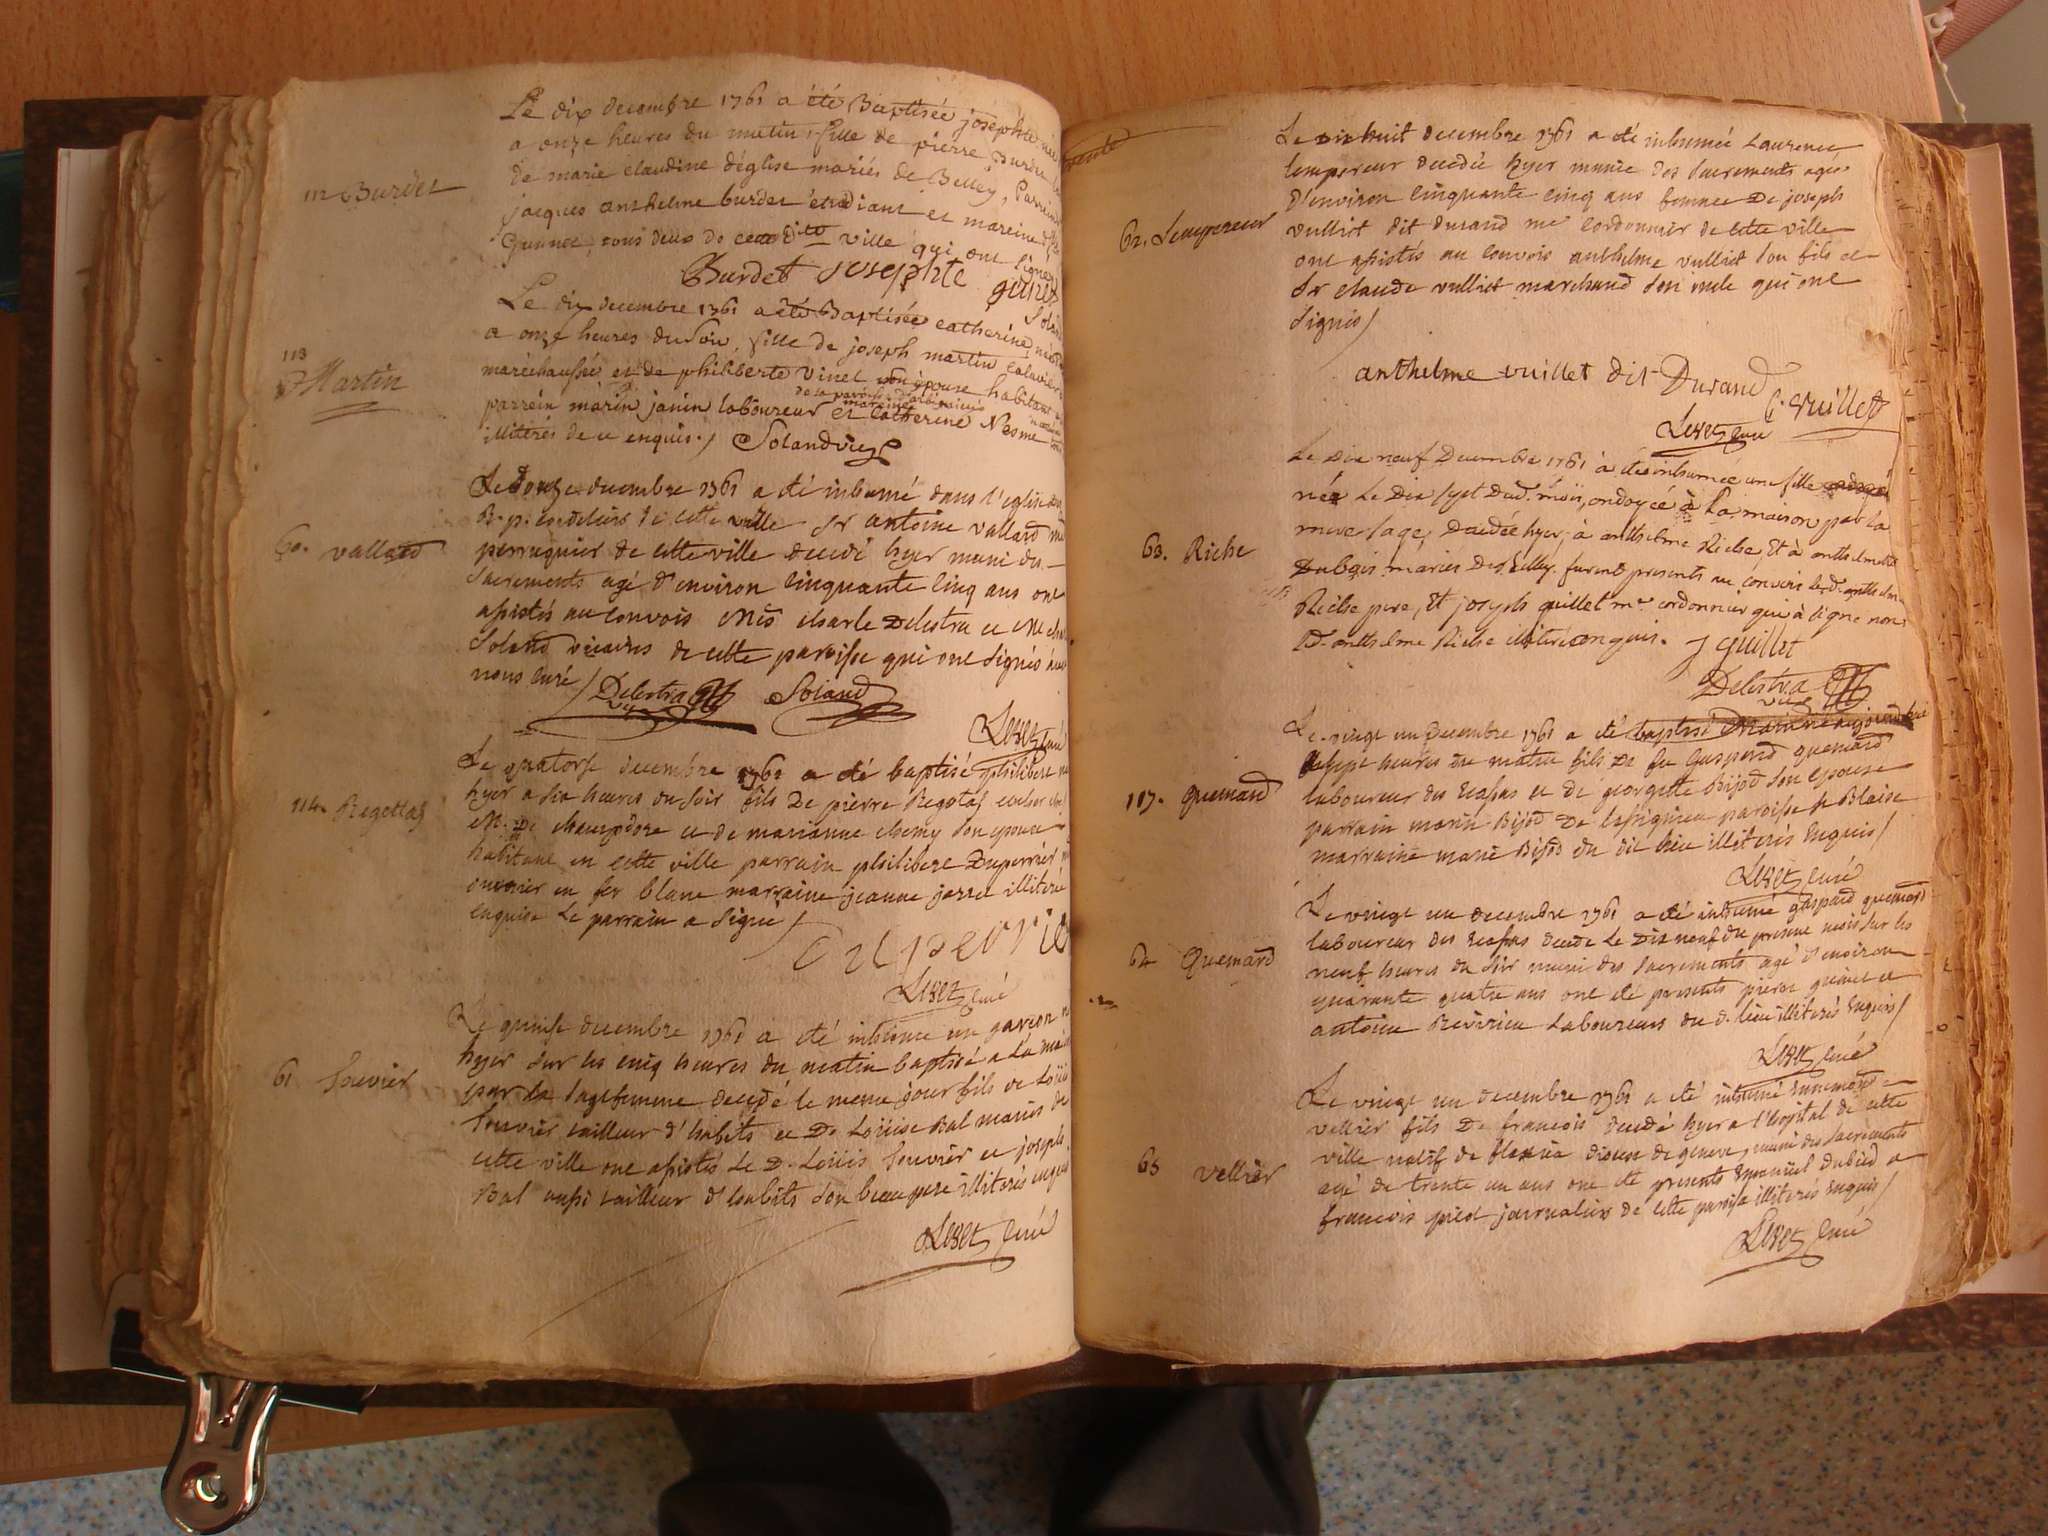 Le dix decembre 1761 a été Baptisée josephte née
a onze heures du matin, fille de pierre Burdet
112 Burdet
de marie claudine déglise mariés de Belley, Parrein
jacques anthelme burdet étudiant et mareine
Guinet, tous deux de cette ville qui ont signé
Burdet josephte guinet
Le dix decembre 1761 a été Baptisée catherine, née
a onze heures du soir, fille de joseph martin cavalier
113
Martin
maréchaussée et de philiberte vinet son épouse habitant
parrein marin janin laboureur et catherine Nesme
illiterés de ce enquis./ Soland vic
Le Douze decembre 1761 a été inhumé dans l'eglise
R. p. cordeliers de cette ville Sr antoine vallard
60. vallard
perruquier de cette ville decedé hyer muni des
Sacrements agé d'environ cinquante cinq ans ont
assistés au convois Mrs charle Delestra et Mr
Soland vicaires de cette paroisse qui ont signés avec
nous curé/ Delestra vic Soland
curé
Le quatorse decembre 1761 a été baptisé philibert né
hyer a six heures du soir fils de pierre Regottaz cocher
114. Regottaz
M. De champdore et de marianne chemy son epouse
habitant en cette ville parrain philibert Duperrier
ouvrier en fer blanc marraine jeanne jarret illiterée
enquise Le parrain a signé/
Duperrier
curé
Le quinse decembre 1761 a été inhumé un garcon né
hyer sur les cinq heures du matin baptisé a la maison
par la sagefemme decedé le meme jour fils de Loüis
61 Souvier
Souvier tailleur d'habits et De Loüise Bal mariés de
cette ville ont assistés Le D. Loüis Souvier et joseph
Bal aussi tailleur d'habits son beau pere illiterés enquis
curé
Le Dix huit decembre 1761 a été inhumée Laurence
Lempereur decedée hyer munie des sacrements agée
d'environ cinquante cinq ans femme De joseph
62. Lempereur
vulliet dit durand me cordonnier de cette ville
ont assistés au convois anthelme vulliet son fils et
Sr claude vulliet marchand son oncle qui ont
signés/
anthelme vuillet dit Durand
C. vuillet
curé
Le Dix neuf Decembre 1761 à été inhumée une fille
née Le Dix sept dud. mois, ondoyée à la maison par la
mere sage, Decedée hyer, à anthelme Riche, Et à anthelmette
63. Riche
Dubois mariés de Belley. furent presents au convois led. anthelme
Riche pere, Et joseph guillet me cordonnier qui à signé non
led. anthelme Riche illiteré enquis. J guillet
Delestra vic
Le vingt un Decembre 1761 a été baptisé né aujourd'hui
a sept heures du matin fils De feu Gaspard quemard
117. quemard
laboureur des ecassas et de georgette Bijod son epouse
parrain marin Bijod De paroisse st Blaise
marraine marie Bijod du dit lieu illiterés enquis/
curé
Le vingt un decembre 1761 a été inhumé gaspard quemard
laboureur des ecassas decedé Le Dix neuf du present mois sur les
64 Quemard
neuf heures du soir muni des sacrements agé d'environ
quarante quatre ans ont été presents pierre guinet et
antoine Reverieu Laboureurs du d. lieu illiterés enquis/
curé
Le vingt un decembre 1761 a été inhumé
vellier fils De francois decedé hyer a l'hopital de cette
ville natif de diocese de geneve, muni des sacrements
65 vellier
agé de trente un ans ont été presents Emanuel Dubied et
francois journaliers de cette paroisse illiterés enquis/
curé